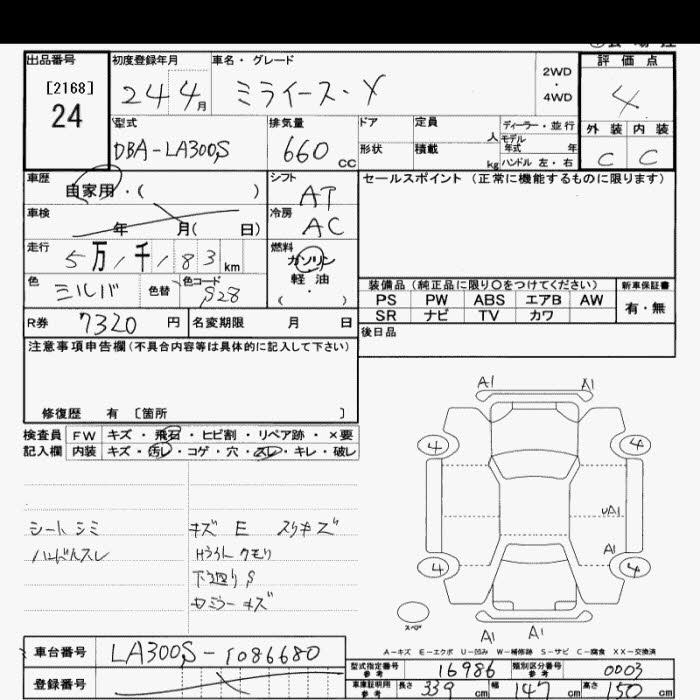 出品番号 初度登録年月 車名・グレード 2WD・4WD 評価点
[2168] 24年4月 ミライース・X 4
24
型式 排気量 ドア 定員 人 ディーラー・並行 外装 内装
DBA-LA300S 660cc 形状 積載 kg モデル年式 年 C C
ハンドル 左・右
車歴 自家用・( ) シフト AT セールスポイント（正常に機能するものに限ります）
車検 年 月( 日) 冷房 AC
走行 5万1千183km 燃料 ガソリン
軽油
・( )
色 シルバ 色替 色コード S28 装備品（純正品に限り○をつけてください） 新車保証書
PS PW ABS エアB AW 有・無
SR ナビ TV カワ
R券 7320円 名変期限 月 日 後日品
注意事項申告欄（不具合内容等は具体的に記入して下さい）
修復歴 有 〔箇所 〕
検査員 FW キズ・飛石・ヒビ割・リペア跡・×要
記入欄 内装 キズ・汚レ・コゲ・穴・スレ・キレ・破レ
シートシミ キズ E スリキズ
ハンドルスレ Hライト クモリ
下廻り S
セミラーキズ
A1 A1
4 4
uA1
A1
4 4
スペア
A1 A1
A－キズ E－エクボ U－凹み W－補修跡 S－サビ C－腐食 XX－交換済
車台番号 LA300S-1086680
登録番号
型式指定番号 参考 16986 類別区分番号 参考 0003
車庫証明用 参考 長さ 339cm 幅 147cm 高さ 150cm